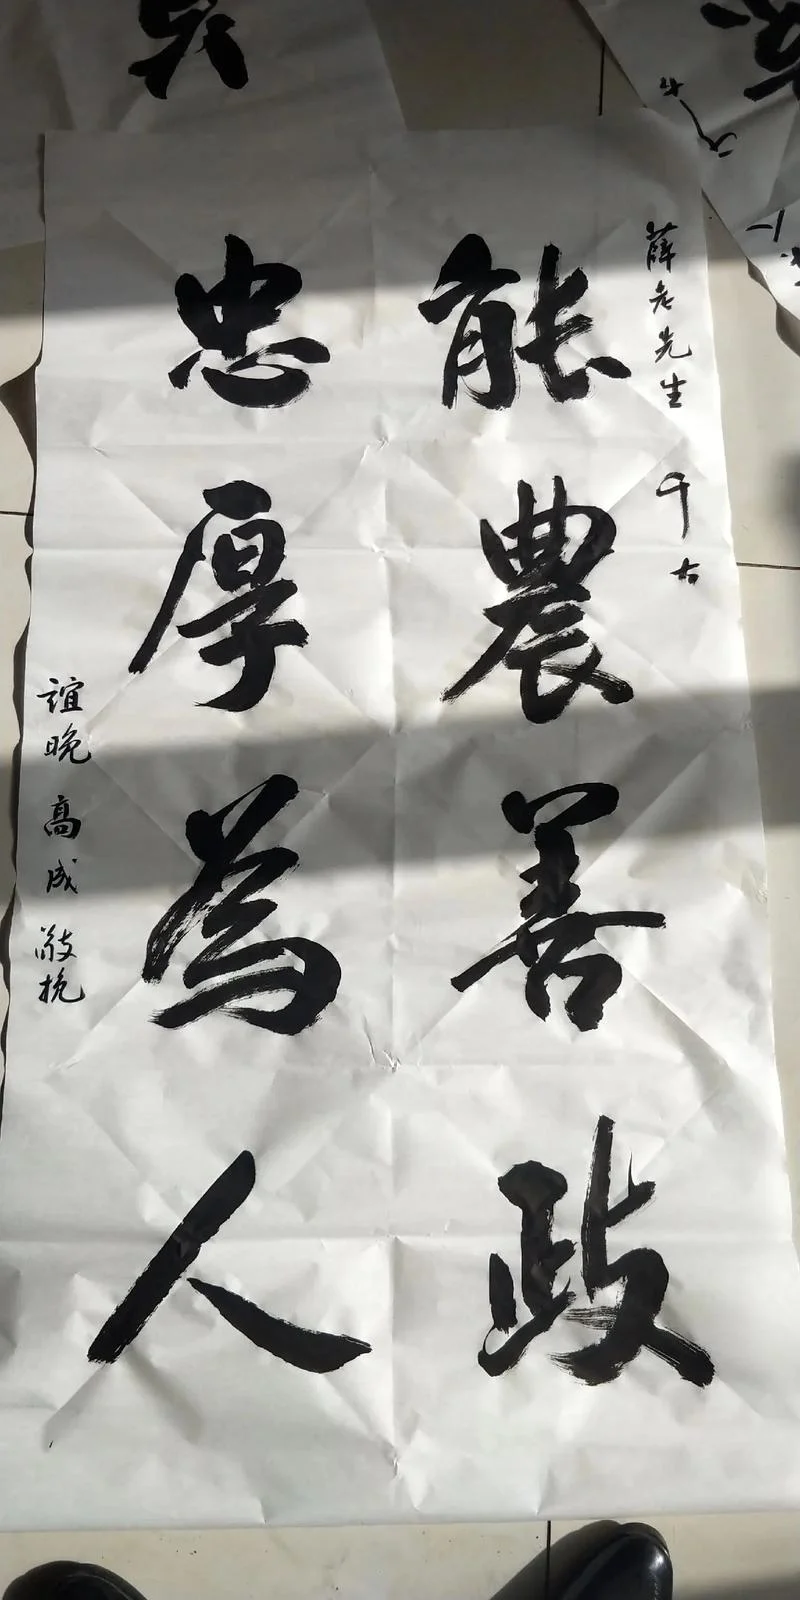 薛老先生 千古
能農善政
忠厚為人
誼晚 高成 敬挽